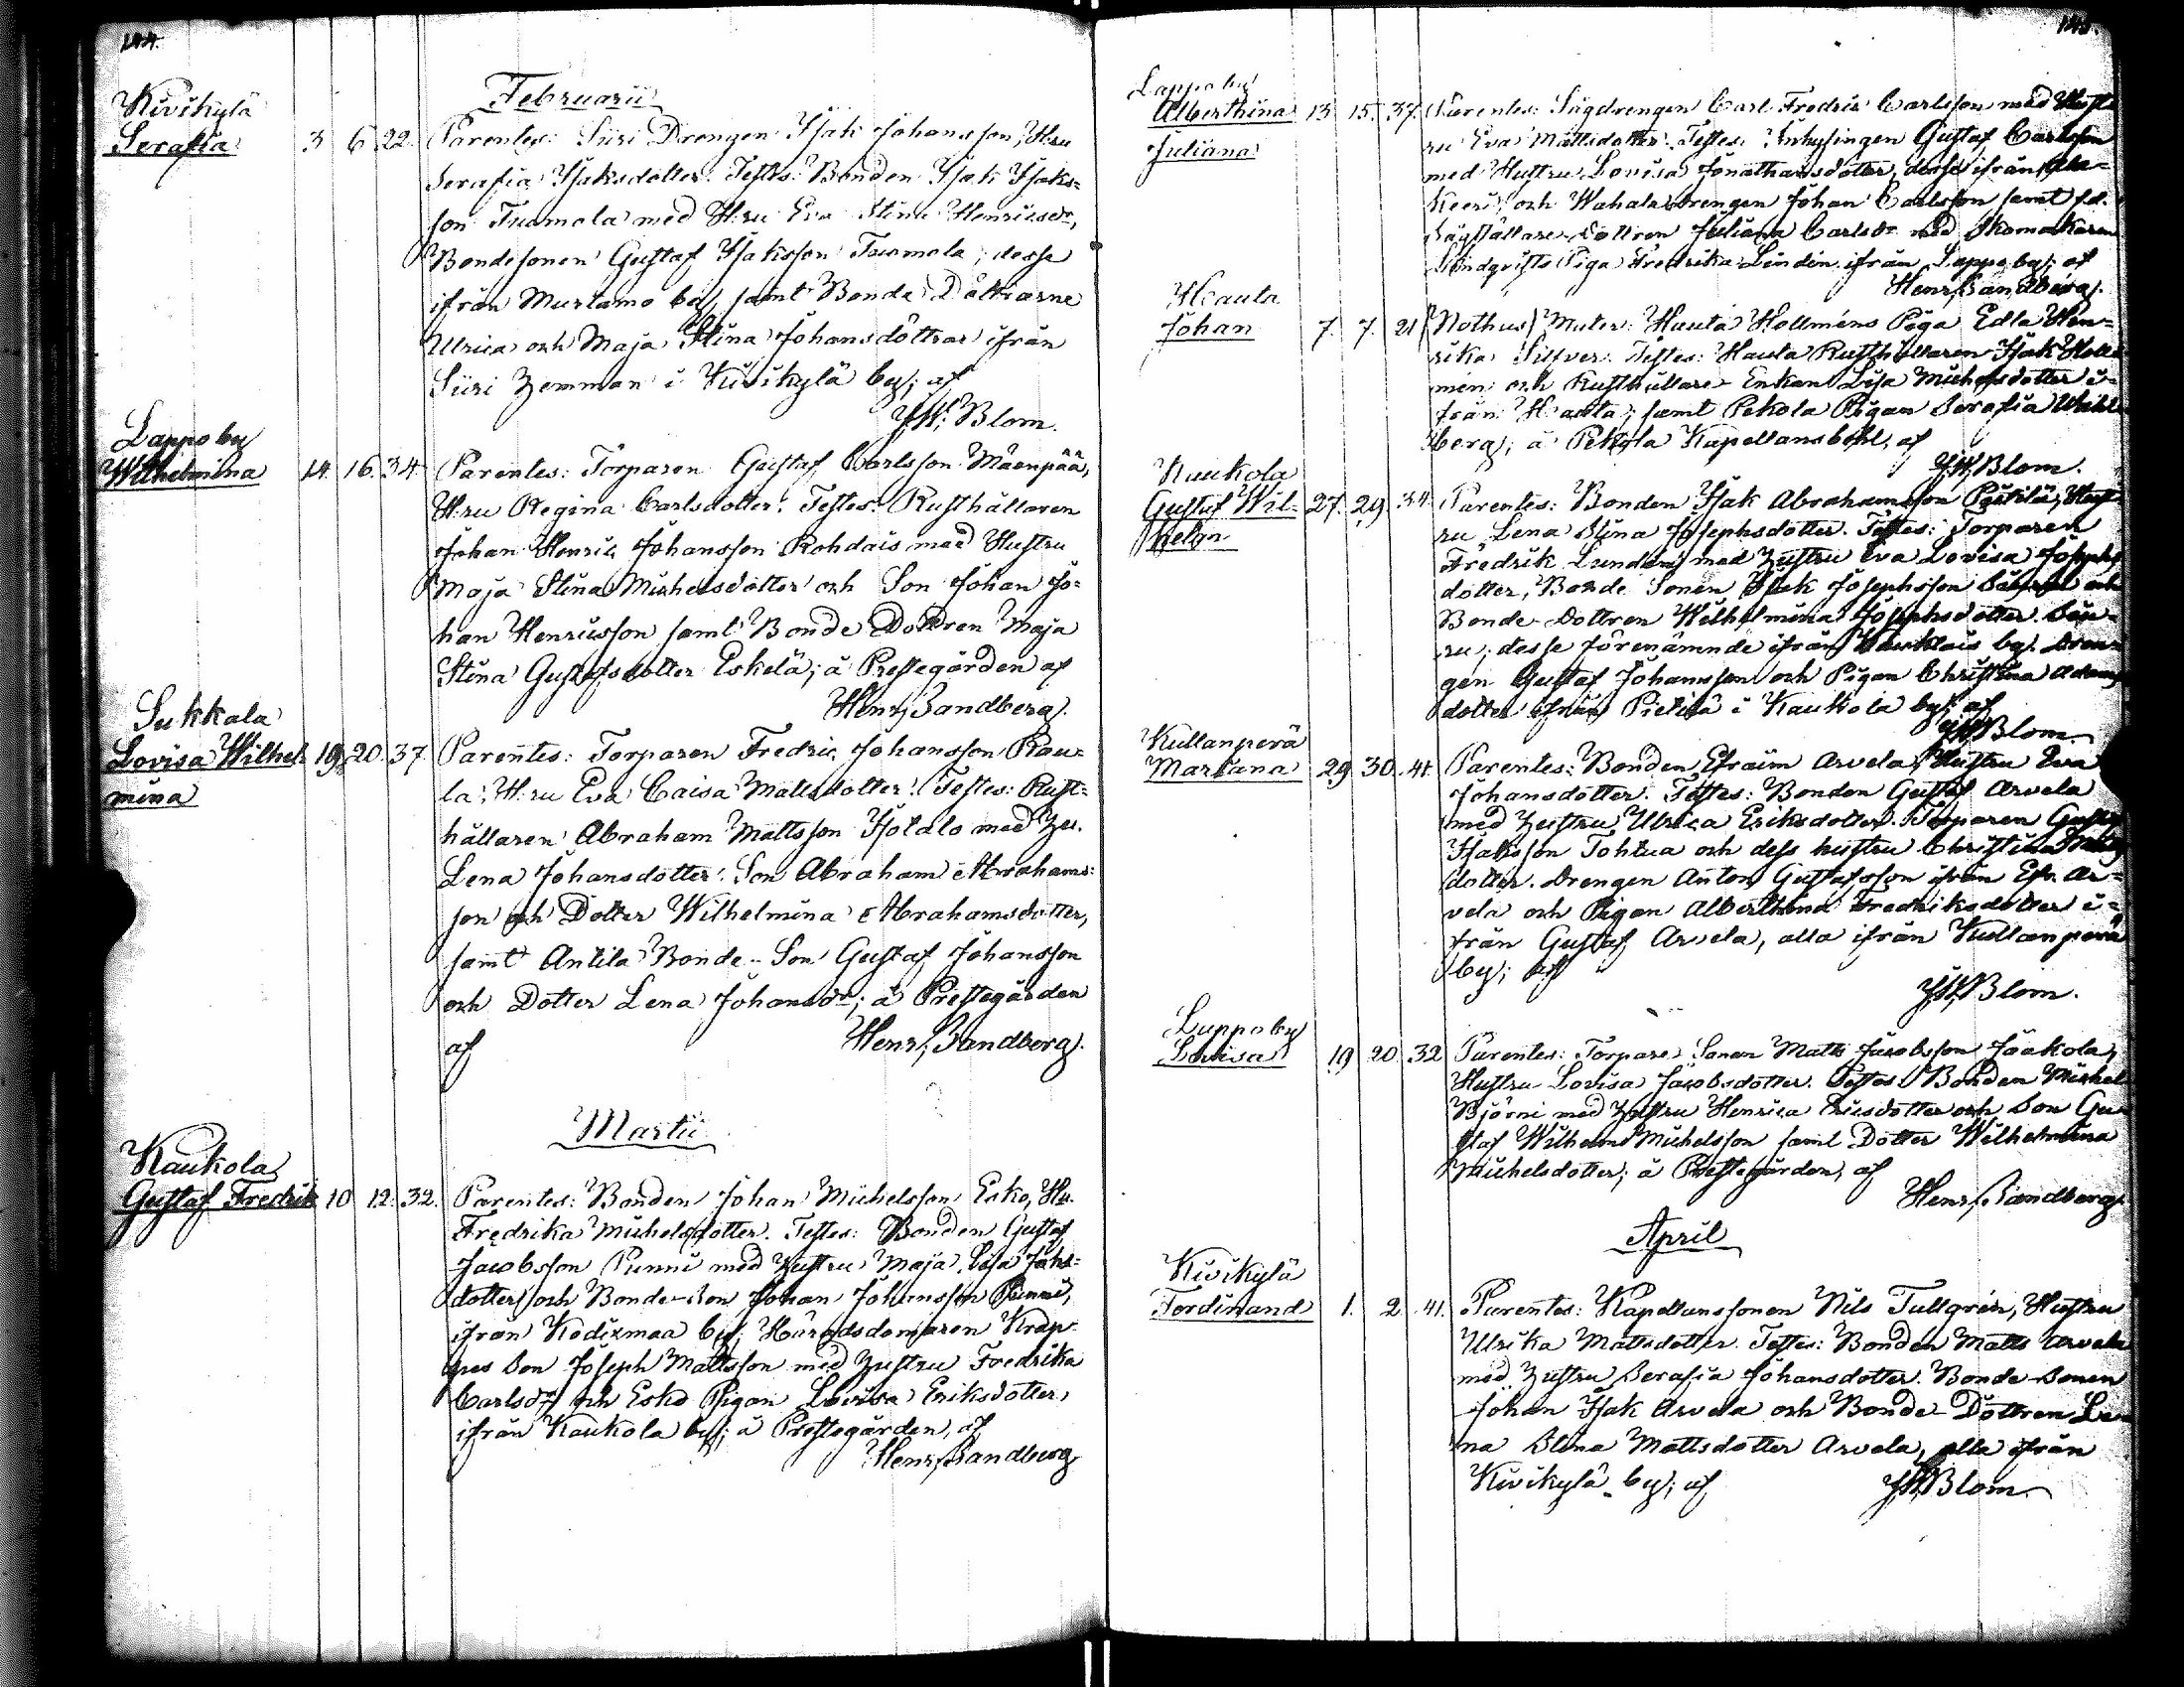 144.
Februarii
Kivikylä
Serafia 3 6 22. Parentes: Siiri Drengen Isak Johansson, H:ru
Serafia Isaksdotter. Testes: Bonden Isak Isaks=
son Tuomola med H:ru Eva Stina Henricsdr,
Bondesonen Gustaf Isaksson Tuomola; desse
ifrån Murtamo by, samt Bonde Döttrarne
Ulrica och Maja Stina Johansdöttrar ifrån
Siiri hemman i Kivikylä by; af
J.W. Blom.
Lappo by
Wilhelmina 14. 16. 34. Parentes: Torparen Gustaf Carlsson Mäenpää,
H:ru Regina Carlsdotter. Testes: Rusthållaren
Johan Henric Johansson Rohdais med Hustru
Maja Stina Michelsdotter och Son Johan Jo=
han Henricsson samt Bonde Dottren Maja
Stina Gustafsdotter Eskelä; å Prestegården af
Henr. Sandberg.
Sukkala
Lovisa Wilhel= 19. 20. 37. Parentes: Torparen Fredric Johansson Rau=
mina
la, H:ru Eva Caisa Mattsdotter. Testes: Rust=
hållaren Abraham Mattsson Isotalo med Hu.
Lena Johansdotter. Son Abraham Abrahams=
son och Dotter Wilhelmina Abrahamsdotter,
samt Antila Bonde-Son Gustaf Johansson
och Dotter Lena Johansdr; å Prestegården
af Henr. Sandberg.
Martii
Kaukola
Gustaf Fredrik 10 12. 32. Parentes: Bonden Johan Michelsson Esko, Hu.
Fredrika Michelsdotter. Testes: Bonden Gustaf
Jacobsson Punni med Hustru Maja Lisa Johs=
dotter och Bonde-Son Johan Johansson Punni,
ifrån Kodixmaa by; Häradsdomaren Krap=
pes Son Joseph Mattsson med Hustru Fredrika
Carlsdr och Esko Pigan Lovisa Eriksdotter
ifrån Kaukola by; å Prestegården, af
Henr. Sandberg
145.
Lappo by
Alberthina 13 15. 37. Parentes: Sågdrengen Carl Fredric Carlsson med Hust=
Juliana
ru Eva Mattsdotter. Testes: Inhysingen Gustaf Carlsson
med Hustru Lovisa Jonathansdotter, desse ifrån
och Wahala drengen Johan Carlsson samt f.d.
Dottren Juliana Carlsdr med Skomakaren
Lindqvists Piga Fredrika Lindin ifrån Lappo by; af
Henr. Sandberg.
Hauta
Johan 7. 7. 21 (Nothus) Mater: Hauta Holléns Piga Edla Hen=
rika Silfver. Testes: Hauta Rusthållaren Isak Holl=
men och Rusthållare-Enkan Lisa Michelsdotter i=
från Hauta; samt Pekola Pigan Serafia Wahl=
berg; å Pekola Kapellansbohl, af
J.W. Blom.
Kaukola
Gustaf Wil= 27. 29. 34. Parentes: Bonden Isak Abrahamsson Pietilä, Hust=
helm
ru Lena Stina Josephsdotter. Testes: Torparen
Fredrik Lunden med Hustru Eva Lovisa Josephs
dotter, Bonde Sonen Isak Josephsson och
Bonde-Dottren Wilhelmina Josephsdotter
desse förenämnde ifrån by. Dren=
gen Gustaf Johansson och Pigan Christina Adams
dotter ifrån Pietilä i Kaukola by; af
J.W. Blom.
Kullanperä
Mariana 29 30. 41. Parentes: Bonden Efraim Arvela, Hustru Eva
Johansdotter. Testes: Bonden Gustaf Arvela
med Hustru Ulrica Eriksdotter. Torparen Gustaf
Isaksson Tohtua och dess hustru Christina
dotter. Drengen Anton Gustafsson ifrån Efr. Ar=
vela och Pigan Alberthina Fredriksdotter i=
från Gustaf Arvela, alla ifrån Kullanperä
by; af
J.W. Blom.
Lappo by
Lovisa 19 20. 32 Parentes: Torpare Sonen Matts Jacobsson Jaakola,
Hustru Lovisa Jacobsdotter. Testes: Bonden Michel
Björni med Hustru Henrica Ericsdotter och Son Gu=
staf Wilhelm Michelsson samt Dotter Wilhelmina
Michelsdotter; å Prestegården, af
Henr. Sandberg.
April
Kivikylä
Ferdinand 1. 2 41. Parentes: Kapellanssonen Nils Tullgrén, Hustru
Ulrika Mattsdotter. Testes: Bonden Matts Arvela
med Hustru Serafia Johansdotter. Bonde-Sonen
Johan Isak Arvela och Bonde-Dottren Le=
na Stina Mattsdotter Arvela, alla ifrån
Kivikylä by; af J.W. Blom.